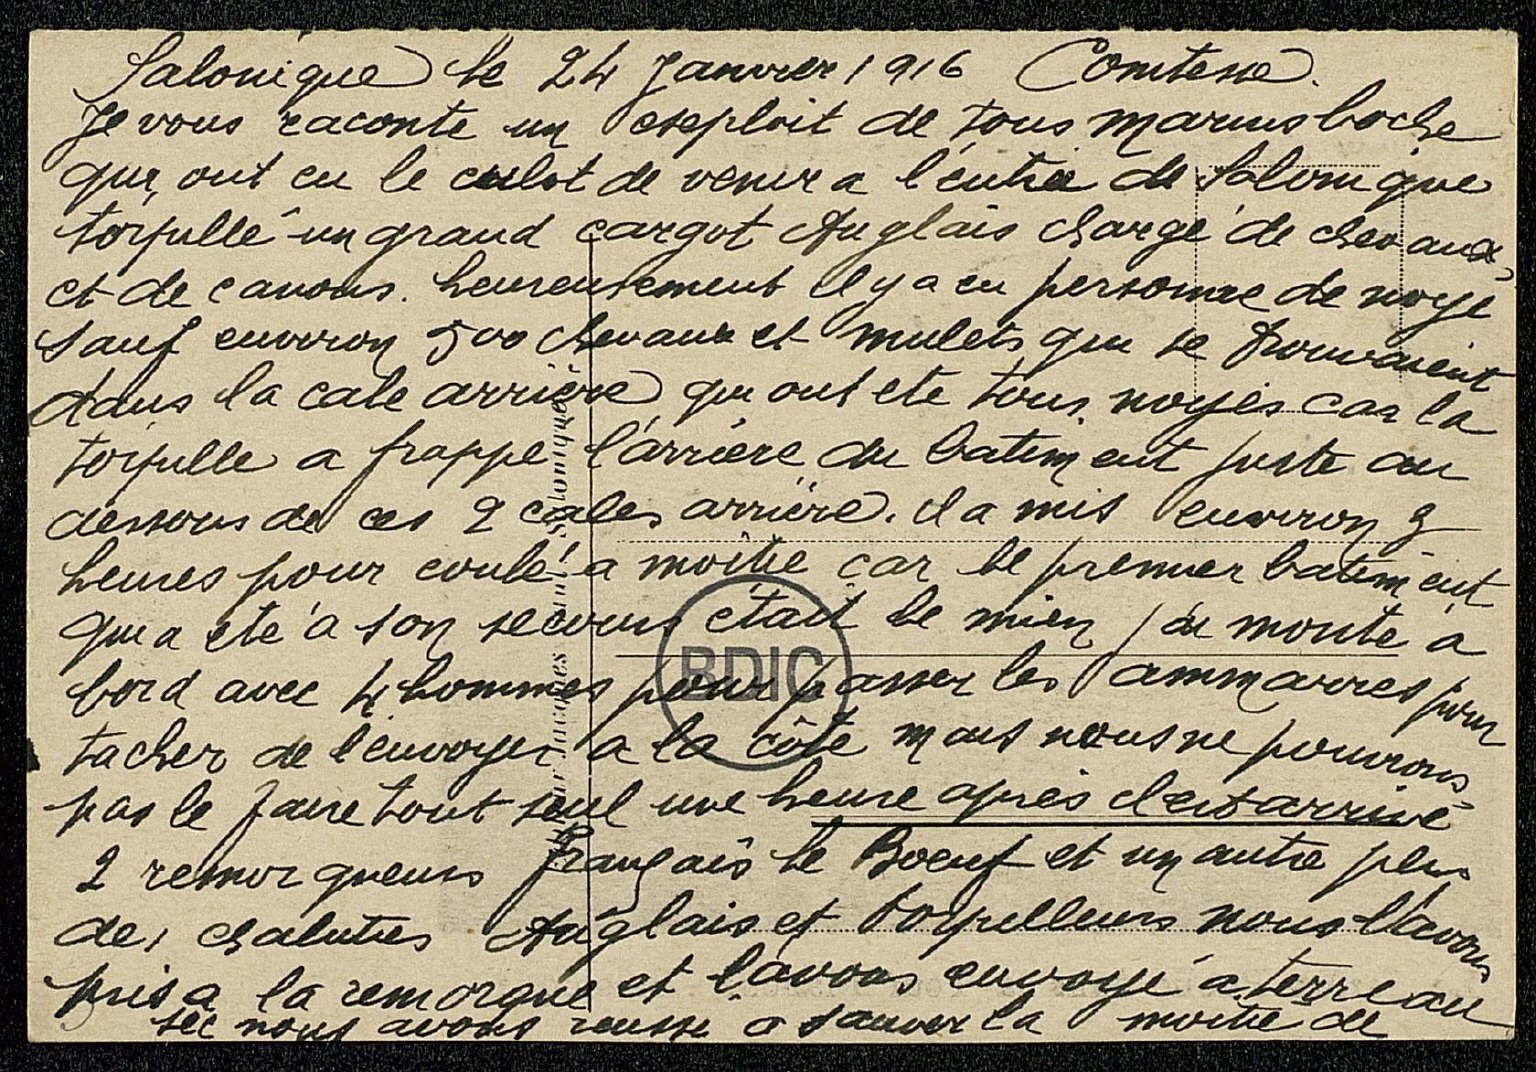 Salonique le 24 Janvier 1916 Comtesse.
Je vous raconte un exploit de sous marins boche
qui ont eu le culot de venir a l'entrée de Salonique
torpillé un grand cargot Anglais chargé de chevaux
et de canons. heureusement il y a eu personne de noyé
sauf environ 500 chevaux et mulets qui se trouvaient
dans la cale arrière qui ont eté tous noyés car la
torpille a frappé l'arrière du batiment juste au
dessous de ces 2 cales arrière. il a mis environ 3
heures pour coulé a moitié car le premier batiment
qui a eté a son secours était le mien j'ai monté a
bord avec 4 hommes pour passer les ammarres pour
tacher de l'envoyer a la côte mais nous ne pouvions
pas le faire tout seul une heure après il est arrivé
2 remorqueurs français le Boeuf et un autre plus
des chalutiers Anglais et torpilleurs nous l'avons
pris a la remorque et l'avons envoyé a terre au
sec nous avons reussi a sauver la moitié de
BDIC